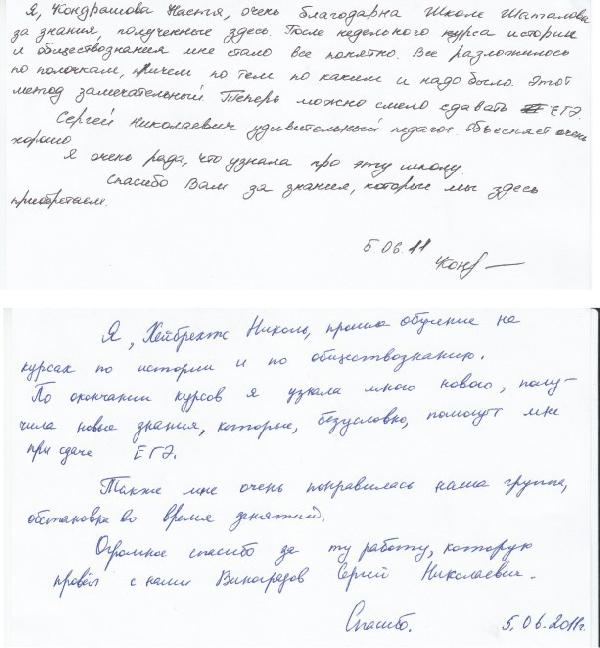 Я, Кондрашова Настя, очень благодарна Школе Шаталова
за знания, полученные здесь. После недельного курса истории
и обществознания мне стало все понятно. Все разложилось
по полочкам, причем по тем по каким и надо было. Этот
метод замечательный. Теперь можно смело сдавать ЕГЭ.
Сергей Николаевич удивительный педагог. Объясняет очень
хорошо
Я очень рада, что узнала про эту школу.
Спасибо Вам за знания, которые мы здесь
приобретаем.
5.06.11
Конд
Я, Хейбрехтс Николь, прошла обучение на
курсах по истории и по обществознанию.
По окончании курсов я узнала много нового, полу-
чила новые знания, которые, безусловно, помогут мне
при сдаче ЕГЭ.
Также мне очень понравилась наша группа,
обстановка во время занятий.
Огромное спасибо за ту работу, которую
провёл с нами Виноградов Сергей Николаевич.
Спасибо. 5.06.2011г.